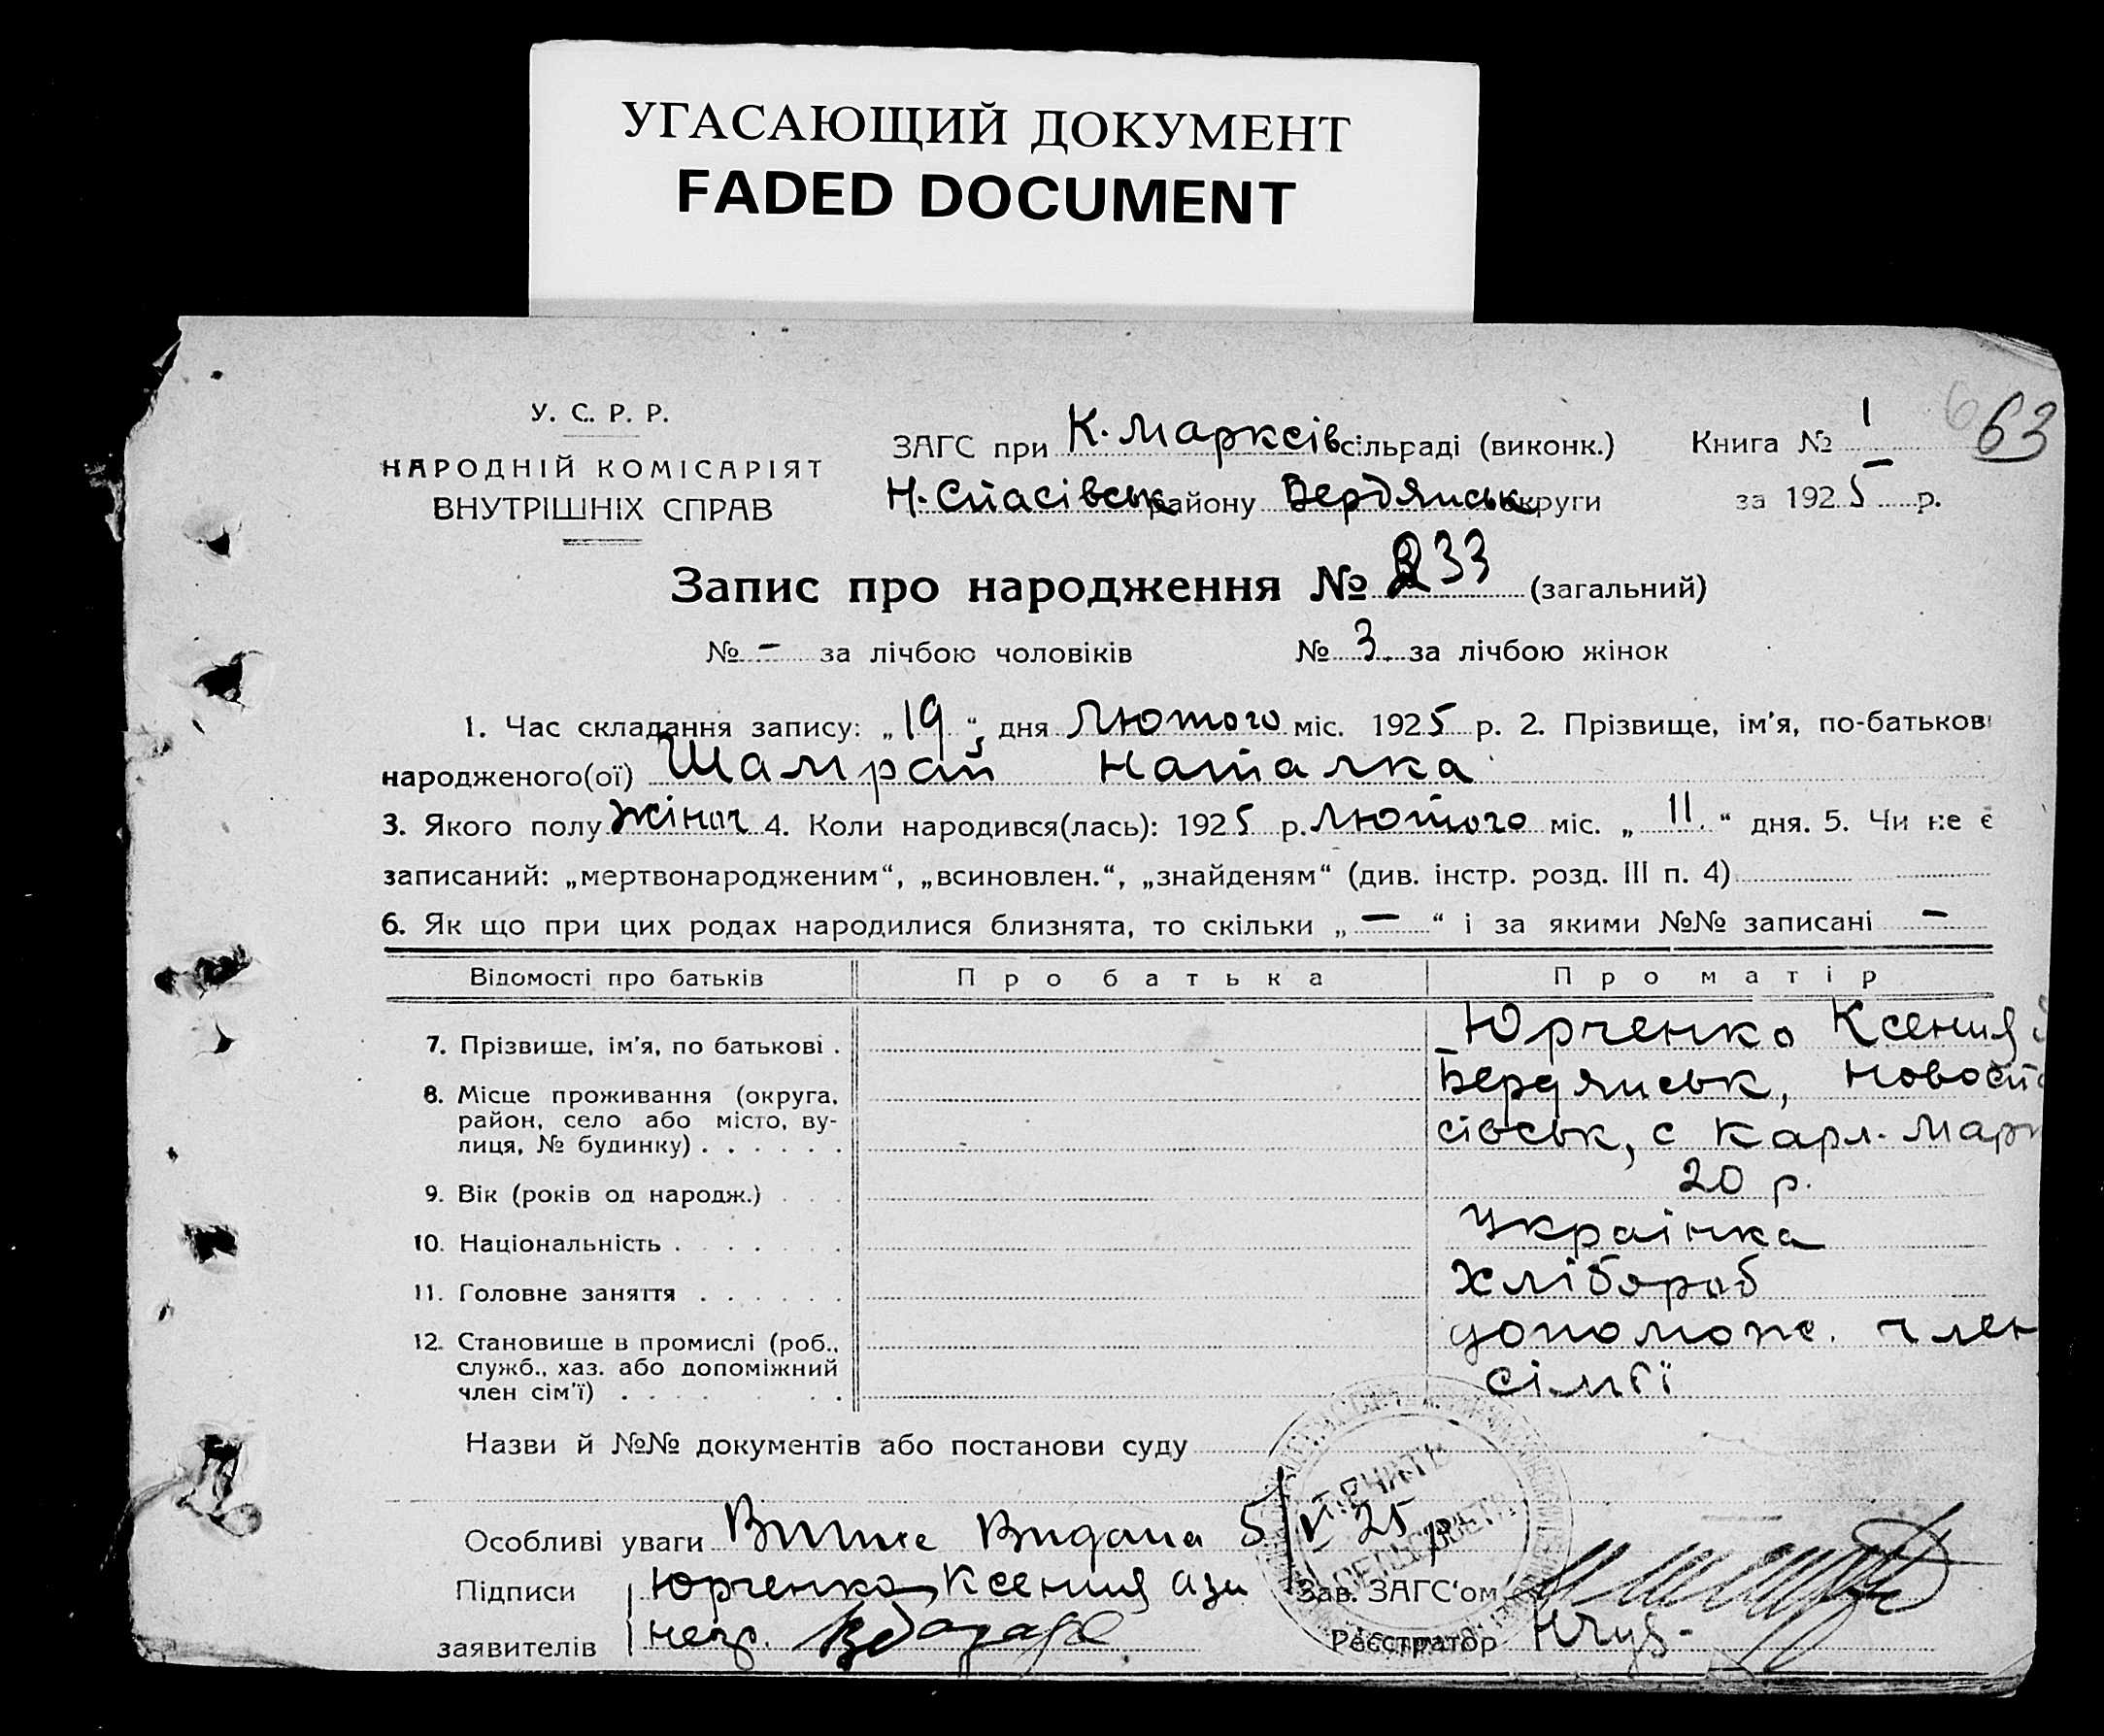 УГАСАЮЩИЙ ДОКУМЕНТ
FADED DOCUMENT
63
У. С. Р. Р.
НАРОДНІЙ КОМІСАРІЯТ
ВНУТРІШНІХ СПРАВ
ЗАГС при К. Марксів сільраді (виконк.) Книга № 1
Н. Спасівськ району Бердянськ округи за 1925 р.
Запис про народження № 233 (загальний)
№ - за лічбою чоловіків № 3 за лічбою жінок
1. Час складання запису: „19“ дня Лютого міс. 1925 р. 2. Прізвище, ім'я, по-батькові
народженого(ої) Шамрай Наталка
3. Якого полу жіноч 4. Коли народився(лась): 1925 р. Лютого міс. „11.“ дня. 5. Чи не є
записаний: „мертвонародженим“, „всиновлен.“, „знайденям“ (див. інстр. розд. III п. 4)
6. Як що при цих родах народилися близнята, то скільки „—“ і за якими №№ записані —
Відомості про батьків Про батька Про матір
7. Прізвище, ім'я, по батькові . Юрченко Ксения
8. Місце проживання (округа, Бердянськ, Новоспа
район, село або місто, ву- сівськ, с Карл. Марк
лиця, № будинку) . . . . . .
9. Вік (років од народж.) . . . 20 р.
10. Національність . . . . . . Українка
11. Головне заняття . . . . . . Хлібороб
12. Становище в промислі (роб., допомож. член
служб., хаз. або допоміжний сімї
член сім'ї) . . . . . .
Назви й №№ документів або постанови суду
ПЕЧАТЬ
СЕЛЬСОВЕТА
Особливі уваги Видана 5/V 25 р
Підписи Юрченко Ксения Зав. ЗАГС'ом
заявителів негр. Реєстратор